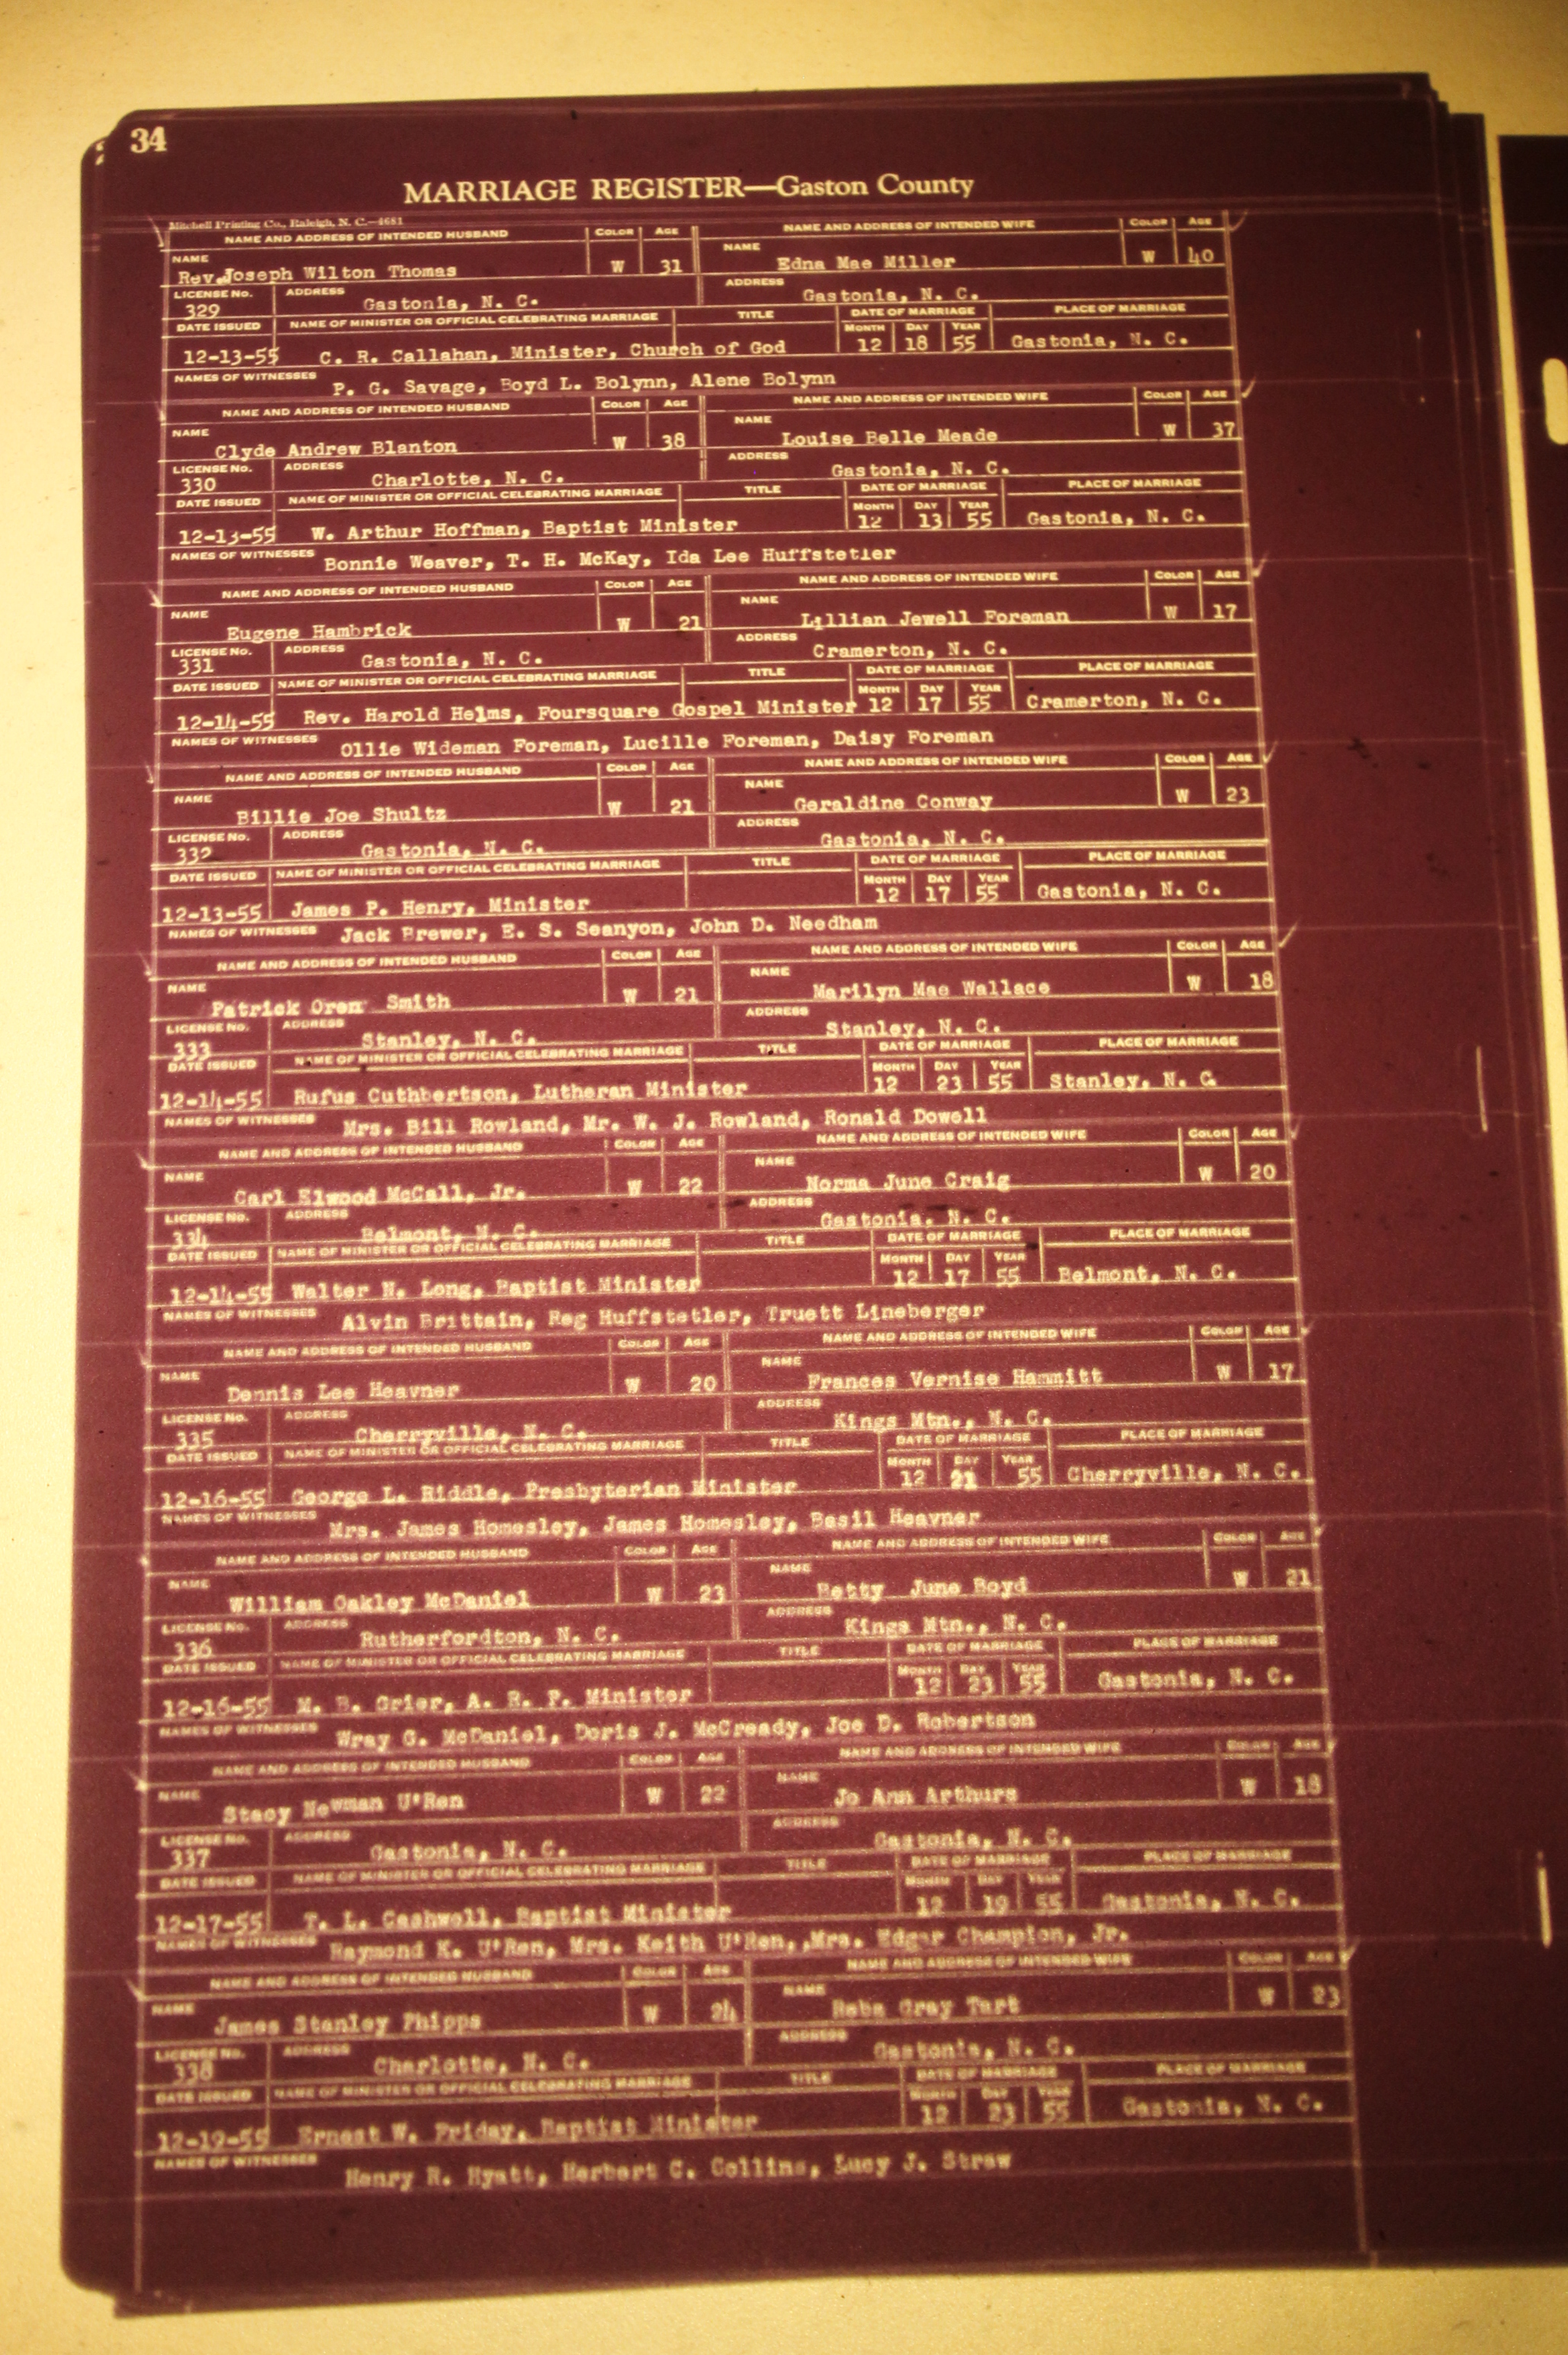 34
MARRIAGE REGISTER—Gaston County
Mitchell Printing Co., Raleigh, N. C.—4681
NAME AND ADDRESS OF INTENDED HUSBAND COLOR AGE NAME AND ADDRESS OF INTENDED WIFE COLOR AGE
NAME Rev. Joseph Wilton Thomas W 31 NAME Edna Mae Miller W 40
LICENSE No. 329 ADDRESS Gastonia, N. C. ADDRESS Gastonia, N. C.
DATE ISSUED NAME OF MINISTER OR OFFICIAL CELEBRATING MARRIAGE TITLE DATE OF MARRIAGE PLACE OF MARRIAGE
MONTH DAY YEAR
12-13-55 C. R. Callahan, Minister, Church of God 12 18 55 Gastonia, N. C.
NAMES OF WITNESSES P. G. Savage, Boyd L. Bolynn, Alene Bolynn
NAME AND ADDRESS OF INTENDED HUSBAND COLOR AGE NAME AND ADDRESS OF INTENDED WIFE COLOR AGE
NAME Clyde Andrew Blanton W 38 NAME Louise Belle Meade W 37
LICENSE No. 330 ADDRESS Charlotte, N. C. ADDRESS Gastonia, N. C.
DATE ISSUED NAME OF MINISTER OR OFFICIAL CELEBRATING MARRIAGE TITLE DATE OF MARRIAGE PLACE OF MARRIAGE
MONTH DAY YEAR
12-13-55 W. Arthur Hoffman, Baptist Minister 12 13 55 Gastonia, N. C.
NAMES OF WITNESSES Bonnie Weaver, T. H. McKay, Ida Lee Huffstetler
NAME AND ADDRESS OF INTENDED HUSBAND COLOR AGE NAME AND ADDRESS OF INTENDED WIFE COLOR AGE
NAME Eugene Hambrick W 21 NAME Lillian Jewell Foreman W 17
LICENSE No. 331 ADDRESS Gastonia, N. C. ADDRESS Cramerton, N. C.
DATE ISSUED NAME OF MINISTER OR OFFICIAL CELEBRATING MARRIAGE TITLE DATE OF MARRIAGE PLACE OF MARRIAGE
MONTH DAY YEAR
12-14-55 Rev. Harold Helms, Foursquare Gospel Minister 12 17 55 Cramerton, N. C.
NAMES OF WITNESSES Ollie Wideman Foreman, Lucille Foreman, Daisy Foreman
NAME AND ADDRESS OF INTENDED HUSBAND COLOR AGE NAME AND ADDRESS OF INTENDED WIFE COLOR AGE
NAME Billie Joe Shultz W 21 NAME Geraldine Conway W 23
LICENSE No. 332 ADDRESS Gastonia, N. C. ADDRESS Gastonia, N. C.
DATE ISSUED NAME OF MINISTER OR OFFICIAL CELEBRATING MARRIAGE TITLE DATE OF MARRIAGE PLACE OF MARRIAGE
MONTH DAY YEAR
12-13-55 James P. Henry, Minister 12 17 55 Gastonia, N. C.
NAMES OF WITNESSES Jack Brewer, E. S. Seanyon, John D. Needham
NAME AND ADDRESS OF INTENDED HUSBAND COLOR AGE NAME AND ADDRESS OF INTENDED WIFE COLOR AGE
NAME Patrick Oren Smith W 21 NAME Marilyn Mae Wallace W 18
LICENSE No. 333 ADDRESS Stanley, N. C. ADDRESS Stanley, N. C.
DATE ISSUED NAME OF MINISTER OR OFFICIAL CELEBRATING MARRIAGE TITLE DATE OF MARRIAGE PLACE OF MARRIAGE
MONTH DAY YEAR
12-14-55 Rufus Cuthbertson, Lutheran Minister 12 23 55 Stanley, N. C.
NAMES OF WITNESSES Mrs. Bill Rowland, Mr. W. J. Rowland, Ronald Dowell
NAME AND ADDRESS OF INTENDED HUSBAND COLOR AGE NAME AND ADDRESS OF INTENDED WIFE COLOR AGE
NAME Carl Elwood McCall, Jr. W 22 NAME Norma June Craig W 20
LICENSE No. 334 ADDRESS Belmont, N. C. ADDRESS Gastonia, N. C.
DATE ISSUED NAME OF MINISTER OR OFFICIAL CELEBRATING MARRIAGE TITLE DATE OF MARRIAGE PLACE OF MARRIAGE
MONTH DAY YEAR
12-14-55 Walter N. Long, Baptist Minister 12 17 55 Belmont, N. C.
NAMES OF WITNESSES Alvin Brittain, Reg Huffstetler, Truett Lineberger
NAME AND ADDRESS OF INTENDED HUSBAND COLOR AGE NAME AND ADDRESS OF INTENDED WIFE COLOR AGE
NAME Dennis Lee Heavner W 20 NAME Frances Vernise Hammitt W 17
LICENSE No. 335 ADDRESS Cherryville, N. C. ADDRESS Kings Mtn., N. C.
DATE ISSUED NAME OF MINISTER OR OFFICIAL CELEBRATING MARRIAGE TITLE DATE OF MARRIAGE PLACE OF MARRIAGE
MONTH DAY YEAR
12-16-55 George L. Riddle, Presbyterian Minister 12 21 55 Cherryville, N. C.
NAMES OF WITNESSES Mrs. James Homesley, James Homesley, Basil Heavner
NAME AND ADDRESS OF INTENDED HUSBAND COLOR AGE NAME AND ADDRESS OF INTENDED WIFE COLOR AGE
NAME William Oakley McDaniel W 23 NAME Betty June Boyd W 21
LICENSE No. 336 ADDRESS Rutherfordton, N. C. ADDRESS Kings Mtn., N. C.
DATE ISSUED NAME OF MINISTER OR OFFICIAL CELEBRATING MARRIAGE TITLE DATE OF MARRIAGE PLACE OF MARRIAGE
MONTH DAY YEAR
12-16-55 M. B. Grier, A. R. P. Minister 12 23 55 Gastonia, N. C.
NAMES OF WITNESSES Wray G. McDaniel, Doris J. McCready, Joe D. Robertson
NAME AND ADDRESS OF INTENDED HUSBAND COLOR AGE NAME AND ADDRESS OF INTENDED WIFE COLOR AGE
NAME Stacy Newman U'Ren W 22 NAME Jo Ann Arthurs W 18
LICENSE No. 337 ADDRESS Gastonia, N. C. ADDRESS Gastonia, N. C.
DATE ISSUED NAME OF MINISTER OR OFFICIAL CELEBRATING MARRIAGE TITLE DATE OF MARRIAGE PLACE OF MARRIAGE
MONTH DAY YEAR
12-17-55 T. L. Cashwell, Baptist Minister 12 19 55 Gastonia, N. C.
NAMES OF WITNESSES Raymond K. U'Ren, Mrs. Keith U'Ren, Mrs. Edgar Champion, Jr.
NAME AND ADDRESS OF INTENDED HUSBAND COLOR AGE NAME AND ADDRESS OF INTENDED WIFE COLOR AGE
NAME James Stanley Phipps W 24 NAME Reba Gray Tart W 23
LICENSE No. 338 ADDRESS Charlotte, N. C. ADDRESS Gastonia, N. C.
DATE ISSUED NAME OF MINISTER OR OFFICIAL CELEBRATING MARRIAGE TITLE DATE OF MARRIAGE PLACE OF MARRIAGE
MONTH DAY YEAR
12-19-55 Ernest W. Friday, Baptist Minister 12 23 55 Gastonia, N. C.
NAMES OF WITNESSES Henry R. Hyatt, Herbert C. Collins, Lucy J. Straw